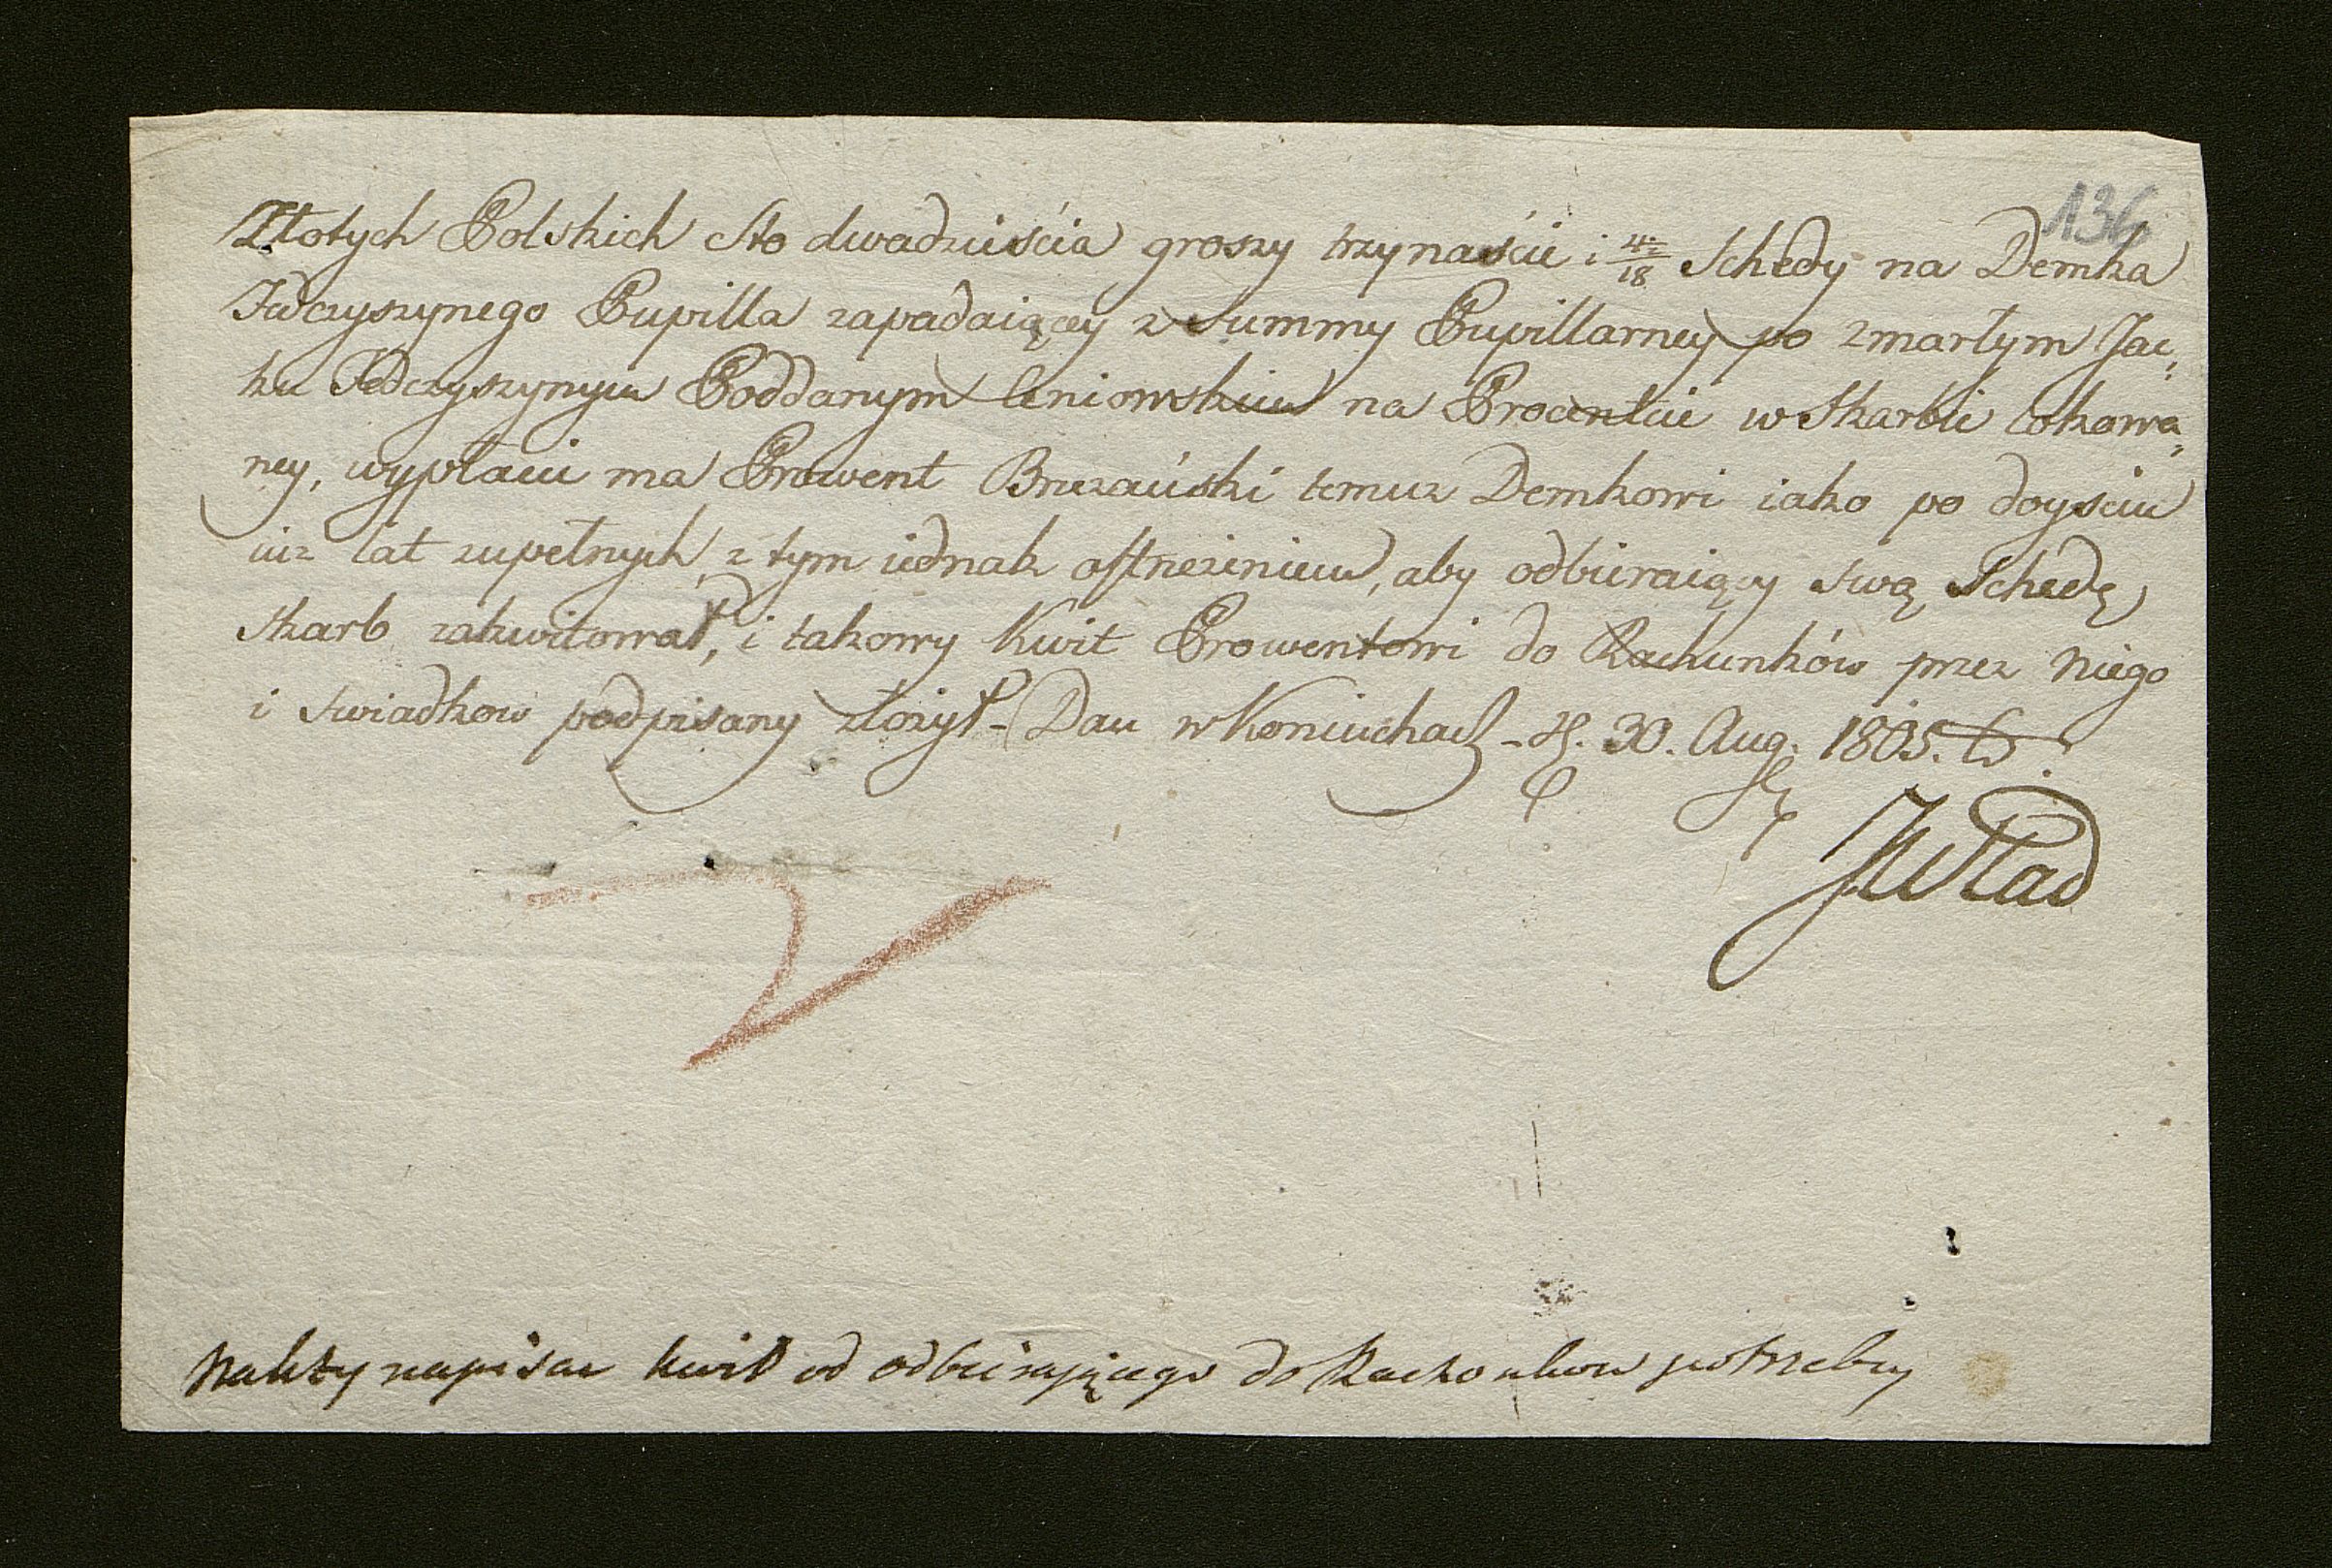 136
Złotych Polskich Sto dwadzieścia groszy trzynaście i 4/18 Schedy na Demka
Fedczyszynego Pupilla zapadaiącey z Summy Pupillarney po zmarłym Jac„
ku Fedczyszynym Poddanym Ceniowskim na Procencie w Skarbie lokowa„
ney, wypłacić ma Prowent Brzeżański temuz Demkowi iako po doysciu
iuz lat zupełnych, z tym iednak ostrzeżeniem, aby odbieraiący swą Schedę
Skarb zakwitował, i takowy Kwit Prowentowi do Rachunków przez niego
i swiadkow podpisany złożył - Dan w Koniuchach - 30. Aug. 1805.
Należy napisac kwit od odbierającego do Rachonkow potrzebny